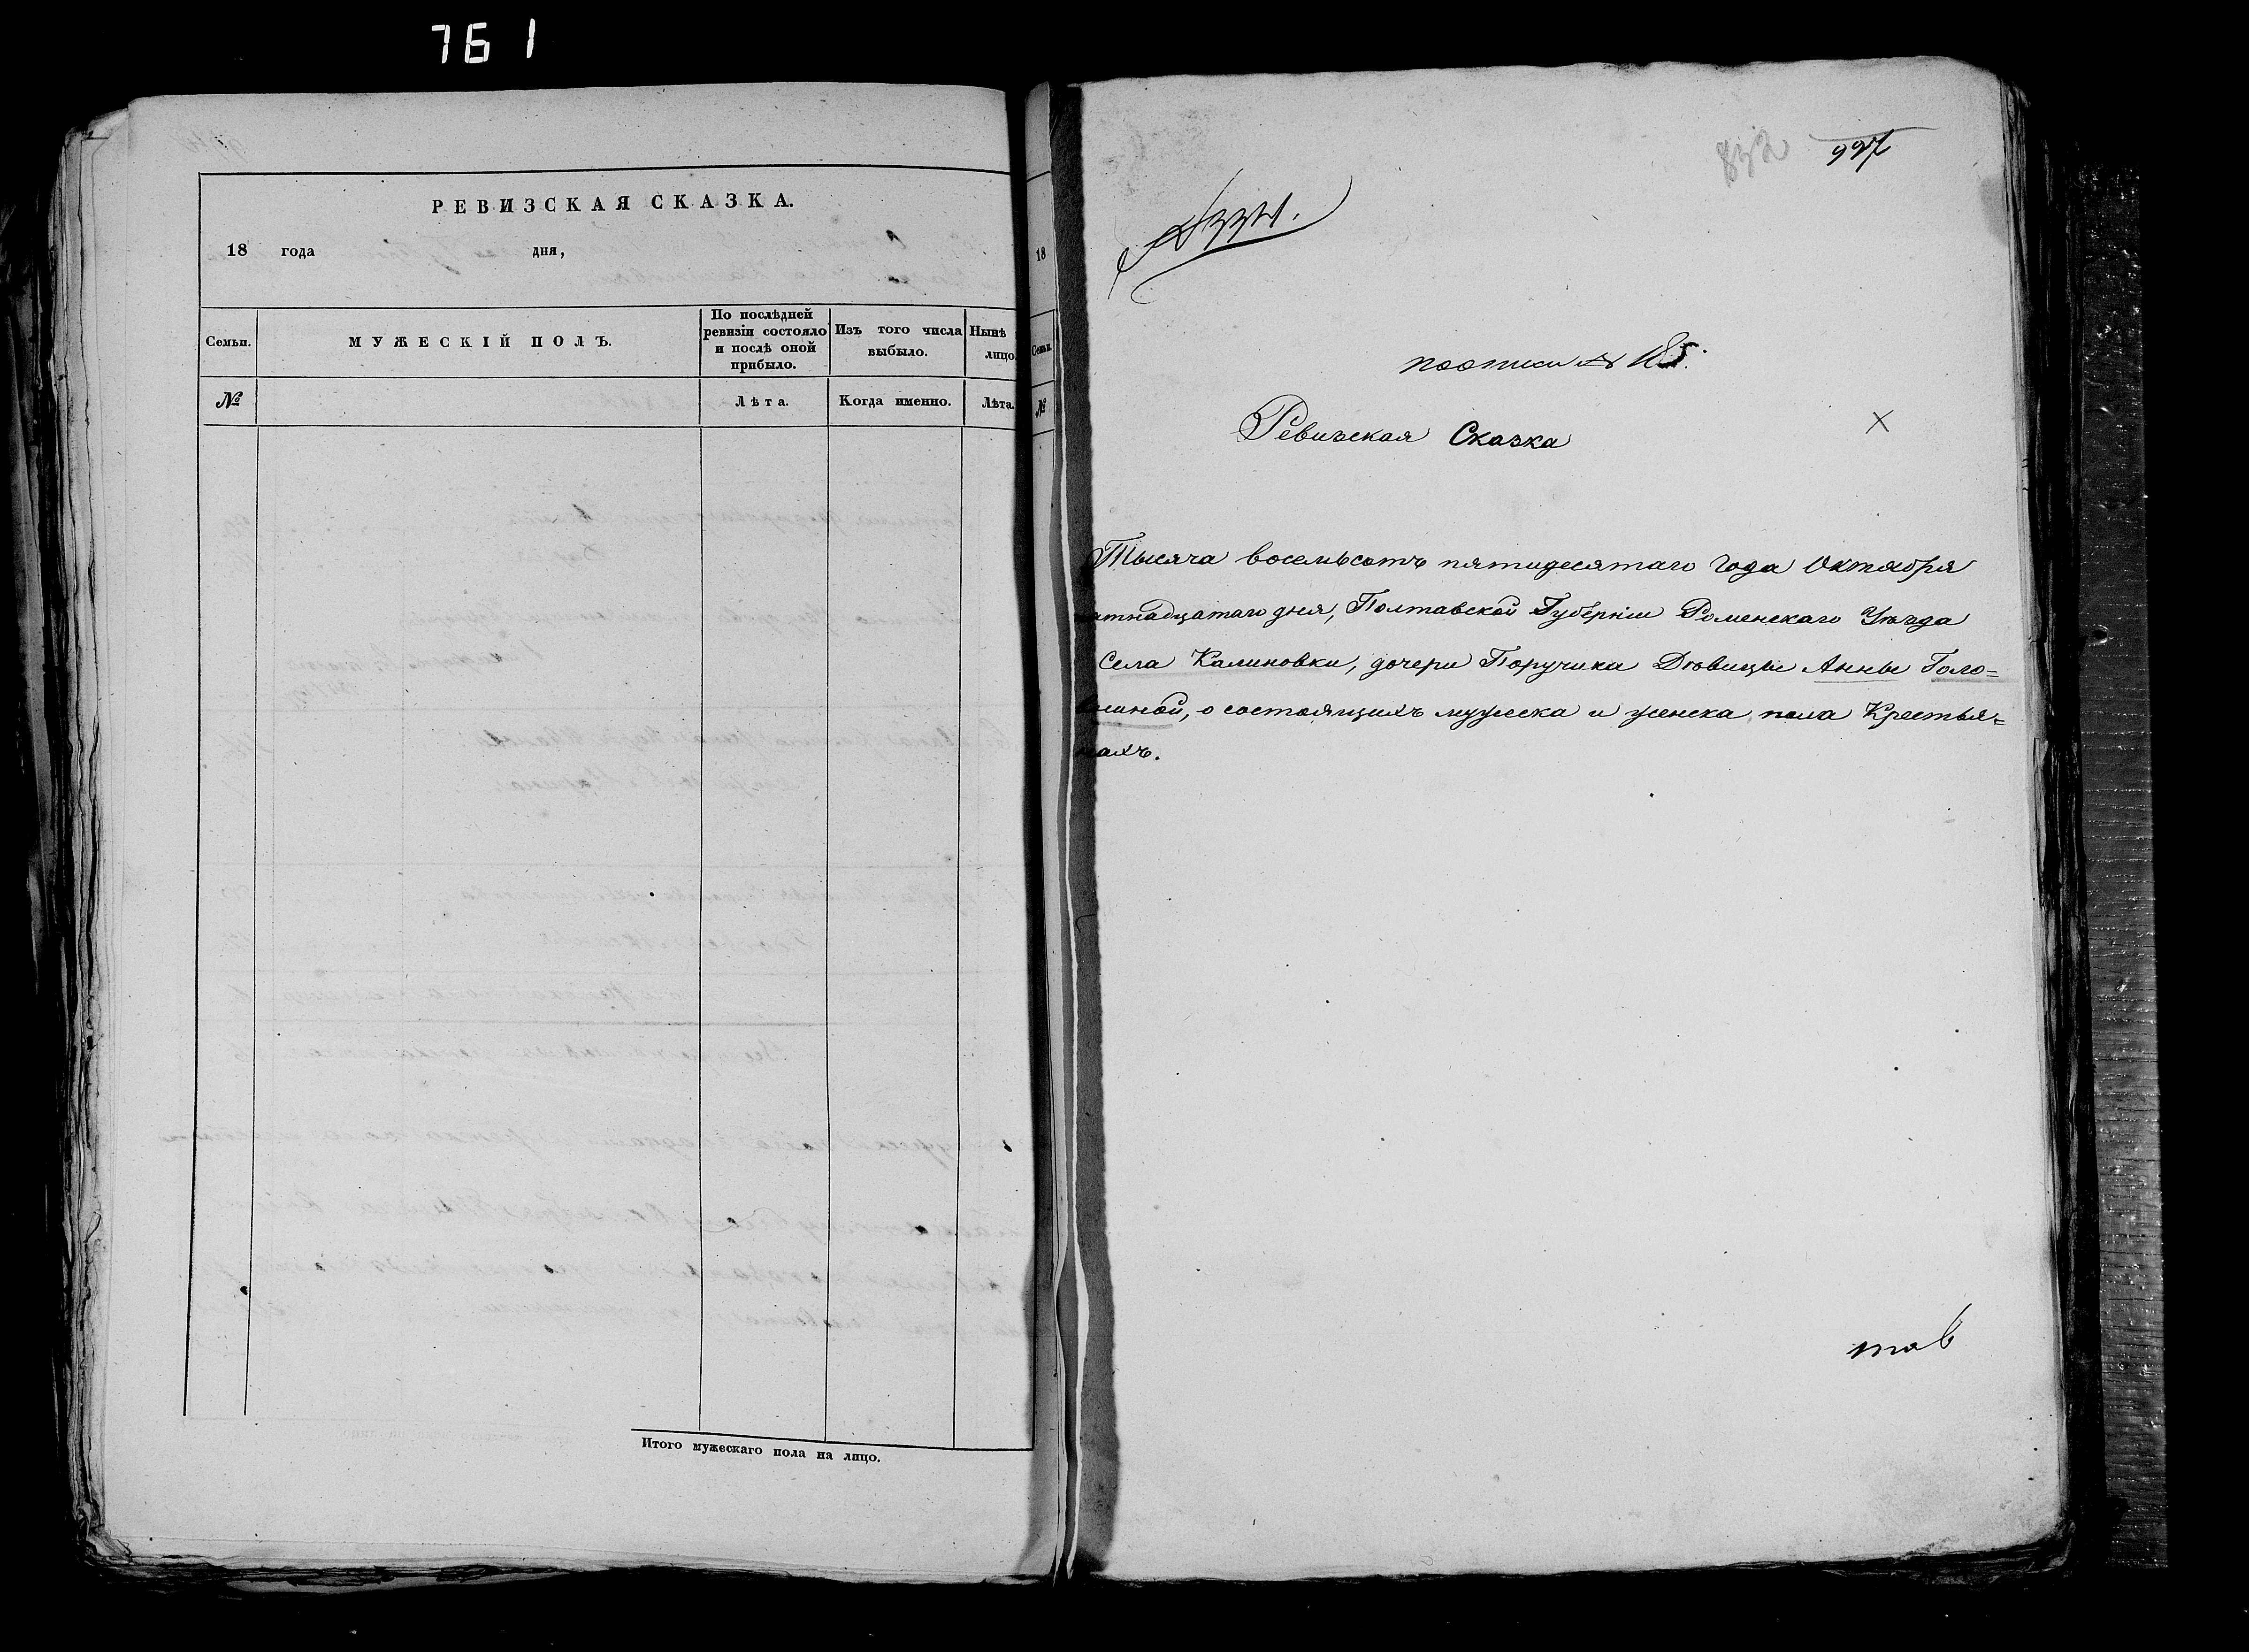 761
РЕВИЗСКАЯ СКАЗКА.
18 года дня,
Семьи.
МУЖЕСКІЙ ПОЛЪ.
По послѣдней
ревизіи состояло
и послѣ оной
прибыло.
Изъ того числа
выбыло.
Нынѣ
лицо.
№
Лѣта.
Когда именно.
Лѣта.
Итого мужескаго пола на лицо.
18
Семьи.
№
832 997
поописи № 185.
Ревизская Сказка
Тысяча восемьсотъ пятидесятаго года Октября
дня, Полтавской Губерніи Роменскаго Уѣзда
Села Калиновки, дочери Поручика Дѣвицы Анны Голо=
о состоящихъ мужеска и женска пола Крестья=
нахъ.